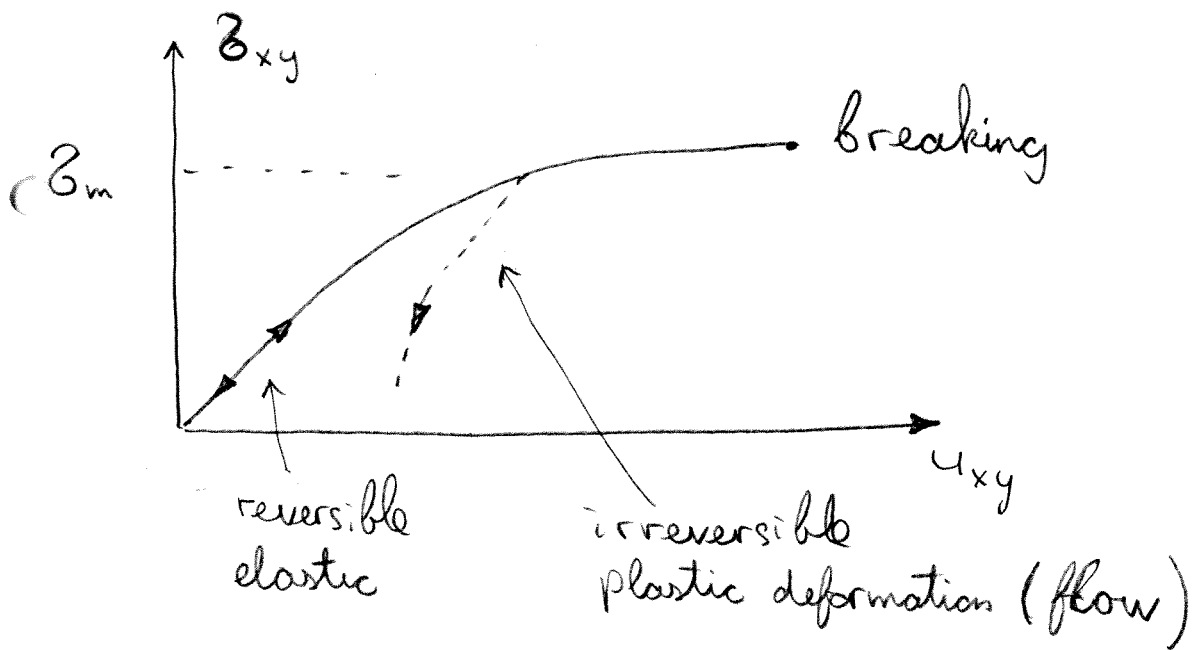 σxy
σm
breaking
uxy
reversible
elastic
irreversible
plastic deformation (flow)